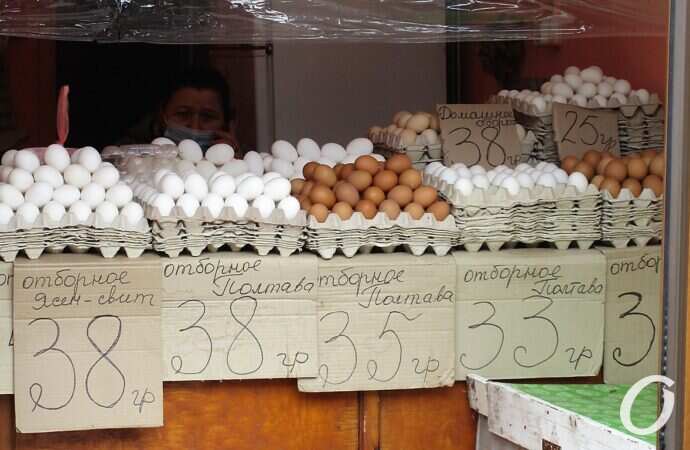 Домашнее
38
25
отборное
Ясен-свит
38 гр
отборное
Полтава
38 гр
отборное
Полтава
35 гр
отборное
Полтава
33 гр
отбор
3